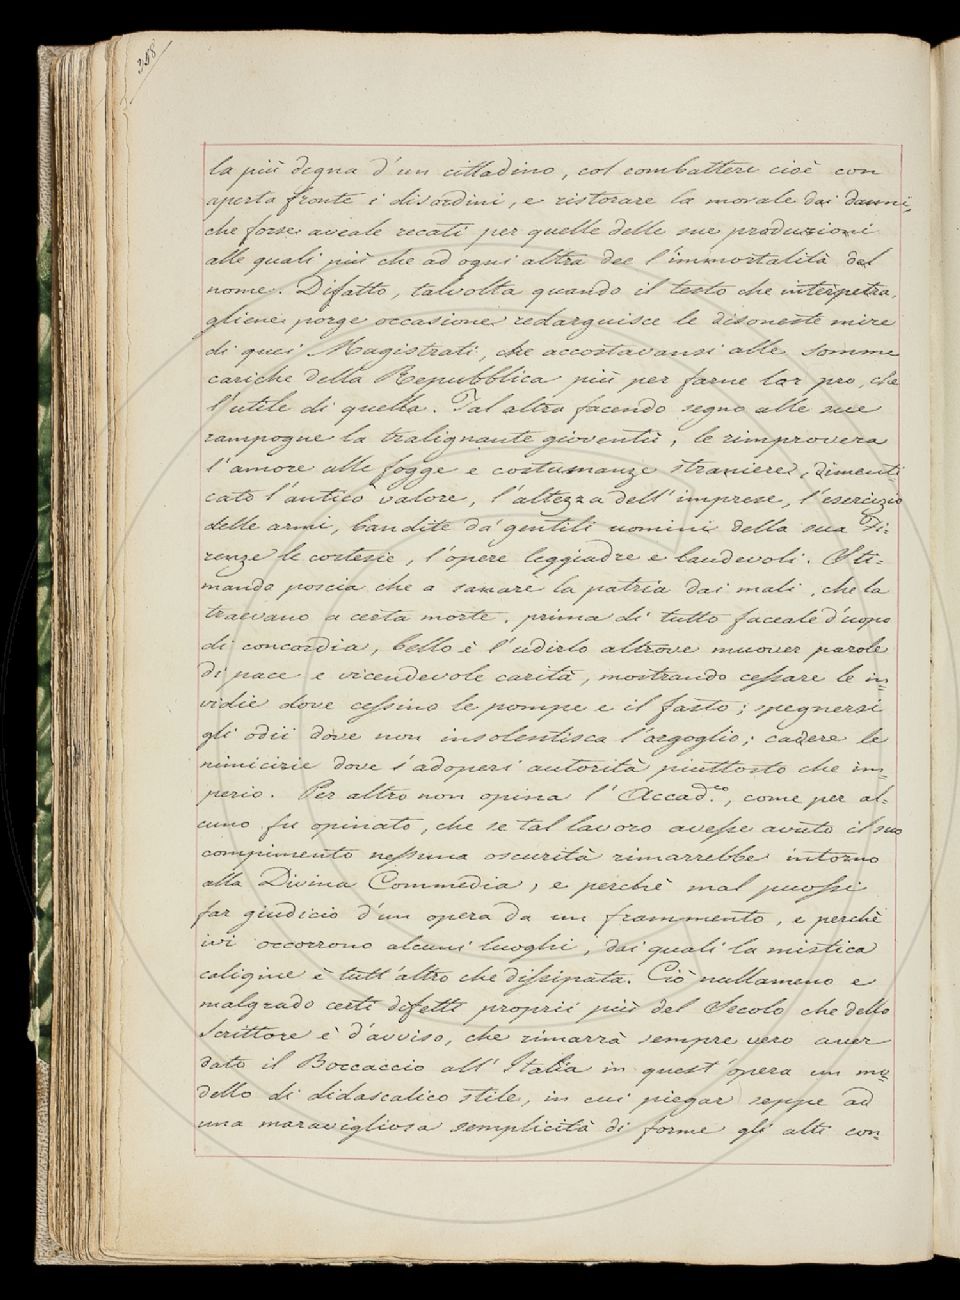 358
la più degna d'un cittadino, col combattere cioè con
aperta fronte i disordini, e ristorare la morale dai danni,
che forse aveale recati per quelle delle sue produzioni
alle quali più che ad ogni altra dee l'immortalità del
nome. Difatto, talvolta quando il testo che interpetra,
gliene porge occasione redarguisce le disoneste mire
di quei Magistrati, che accostavansi alle somme
cariche della Repubblica più per farne lor pro, che
l'utile di quella. Tal altra facendo segno alle sue
rampogne la tralignante gioventù, le rimprovera
l'amore alle fogge e costumanze straniere, dimenti
cato l'antico valore, l'altezza dell'imprese, l'esercizio
delle armi, bandite da' gentili uomini della sua Fi=
renze le cortesie, l'opere leggiadre e laudevoli. Sti=
mando poscia che a sanare la patria dai mali, che la
traevano a certa morte, prima di tutto faceale d'uopo
di concordia, bello è l'udirlo altrove muover parole
di pace e vicendevole carità, mostrando cessare le in=
vidie dove cessino le pompe e il fasto; spegnersi
gli odii dove non insolentisca l'orgoglio; cadere le
nimicizie dove s'adoperi autorità piuttosto che im=
perio. Per altro non opina l'Accad.co, come per al=
cuno fu opinato, che se tal lavoro avesse avuto il suo
compimento nessuna oscurità rimarrebbe intorno
alla Divina Commedia, e perchè mal puossi
far giudicio d'un opera da un frammento, e perchè
ivi occorrono alcuni luoghi, dai quali la mistica
caligine è tutt'altro che dissipata. Ciò nullameno e
malgrado certi difetti proprii più del Secolo che dello
Scrittore è d'avviso, che rimarrà sempre vero aver
dato il Boccaccio all'Italia in quest'opera un mo=
dello di didascalico stile, in cui piegar seppe ad
una maravigliosa semplicità di forme gli alti con=